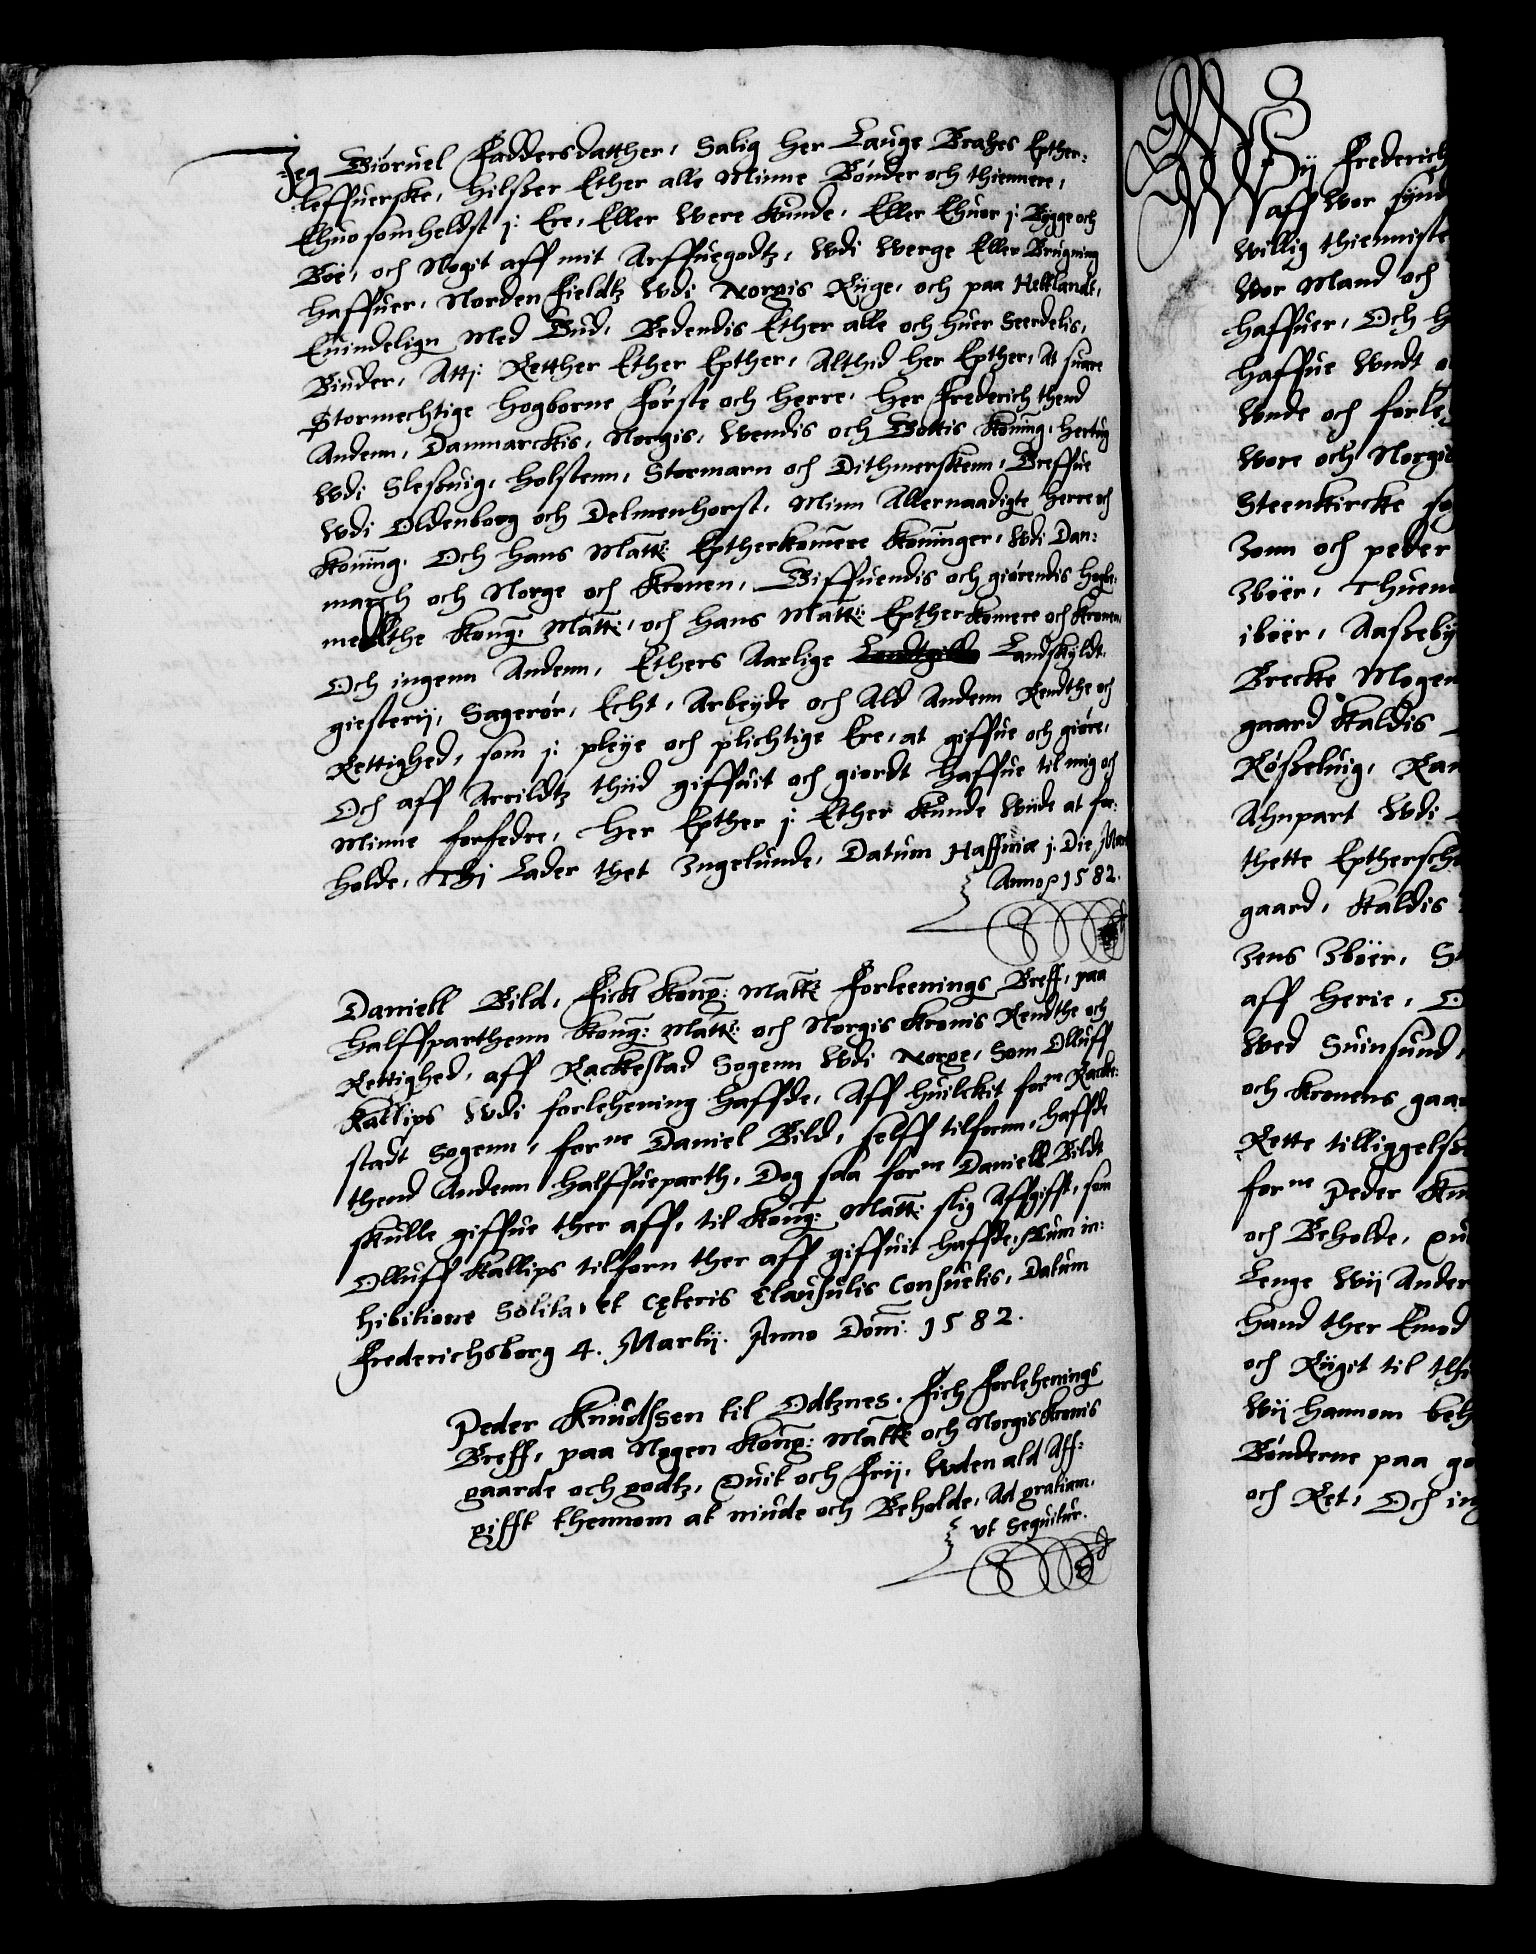 Jeg Giøruel Faddersdatther, Salig Her Lauge Brahes Epther:
leffuerske, Hilsser Ether alle Minne Bønder och thiennere,
Ehuo somhelst j: Ere, Eller Were Kunde, Eller Ehuor j: Bygge och
Boe, och Nogit aff mit Arffuegodtz, Wdi Werge Eller Brugning
haffuer, Norden Fieldtz Wdi Norgis Rige, och paa Hetlandt,
Euindelign Med Gud, Bedendis Ether alle och huer Seerdelis,
Biuder, Attj: Retther Ether Epther, Althid her Epther, At suare
Stormechtige Hogborne Første och Herre, Her Frederich thend
Andenn, Danmarckis, Norgis, Wendis och Gottis Konning, Hertug
Wdi Slesuig, Holstenn, Stormarn och Dithmerskenn, Greffue
Wdi Oldenborg och Delmenhorst, Minn Allernaadigte Herre och
Konning, Och Hans Matt: Eptherkomere Konninger, Wdi Dan:
march och Norge och Kronen, Giffuendis och giørendis Høgbe:
mellthe Kong: Matt:, och Hans Matt: Eptherkomere och Kronen,
Och ingenn Andenn, Ethers Aarlige Landskyldt,
giesterij, Sagerør, Echt, Arbeyde och Ald Andenn Rendthe och
Rettighed, som j: pleye och plichtige Ere, at giffue och giøre,
Och aff Arrildtz thiid giffuit och giordt haffue til mig och
Minne forfedre, Her Epther j: Ether Kunde Wiide at for:
holde, Thj Lader thet Ingelunde, Datum Haffniæ j. Die Mar
Anno 1582.
Daniell Bild, Fick Kong: Matt: Forleenings Breff, paa
halffparthenn Kong: Matt: och Norgis Kronis Rendthe och
Rettighed, aff Rackestad Sogenn Wdi Norge, Som Olluff
Kallips Wdi forlehening haffde, Aff huilckit forne Racke:
stadt Sogenn, forne Daniel Bild, selff tilfornn, haffde
thend Andenn halffueparth, Dog saa forne Daniell Bildt
skulle giffue ther aff, til Kong: Matt: slig Affgifft, som
Olluff Kallips tilforn ther aff giffuit haffde, Cum in:
hibitione Solita, et Cęteris Clausulis Consuetis, Datum
Frederichsborg 4. Martij. Anno Domi: 1582.
Peder Knudssen til Odtznes. Fich Forlehenings
Breff, paa Nogen Kong: Matt: och Norgis Kronis
gaarde och godtz, Quit och Frij, Wden ald Aff:
gifft thennom at niude och Beholde, Ad gratiam,
vt Sequitur.
Wij Frederich
aff Wor synd
Willig thienniste
Wor Mand och
haffuer, Och
haffue Wndt
Wnde och forle
Wore och Norgis
Steenkircke
Zonn och peder
Iboer, Thuen
iboer, Aasseby
Brecke Mogen
gaard Kaldis
Røsseluig, Ran
Ahnpart Wdi
thette Eptherschr
gaard, Kaldis
Jens Iboer,
aff Herie,
Wed Suinsund,
och Kronens gaar
Rette tilliggelse
forne Peder Knu
och Beholde, Qui
Lenge Wij Ander
hand ther Emod
och Rügit til
Wij hannom
Bønderne paa
och Ret, Och